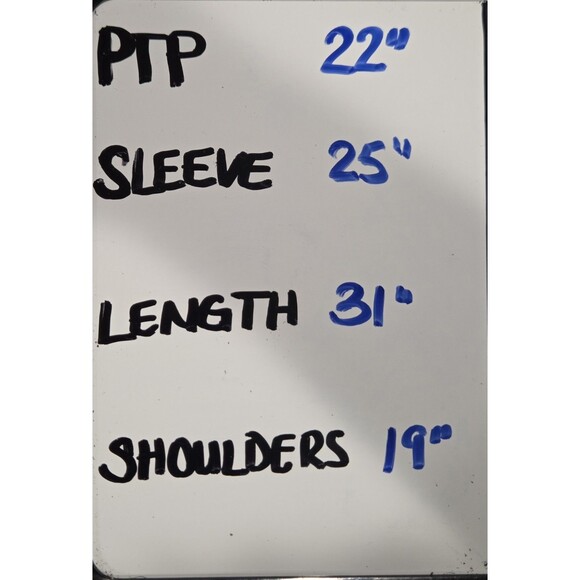 PTP 22"
SLEEVE 25"
LENGTH 31"
SHOULDERS 19"